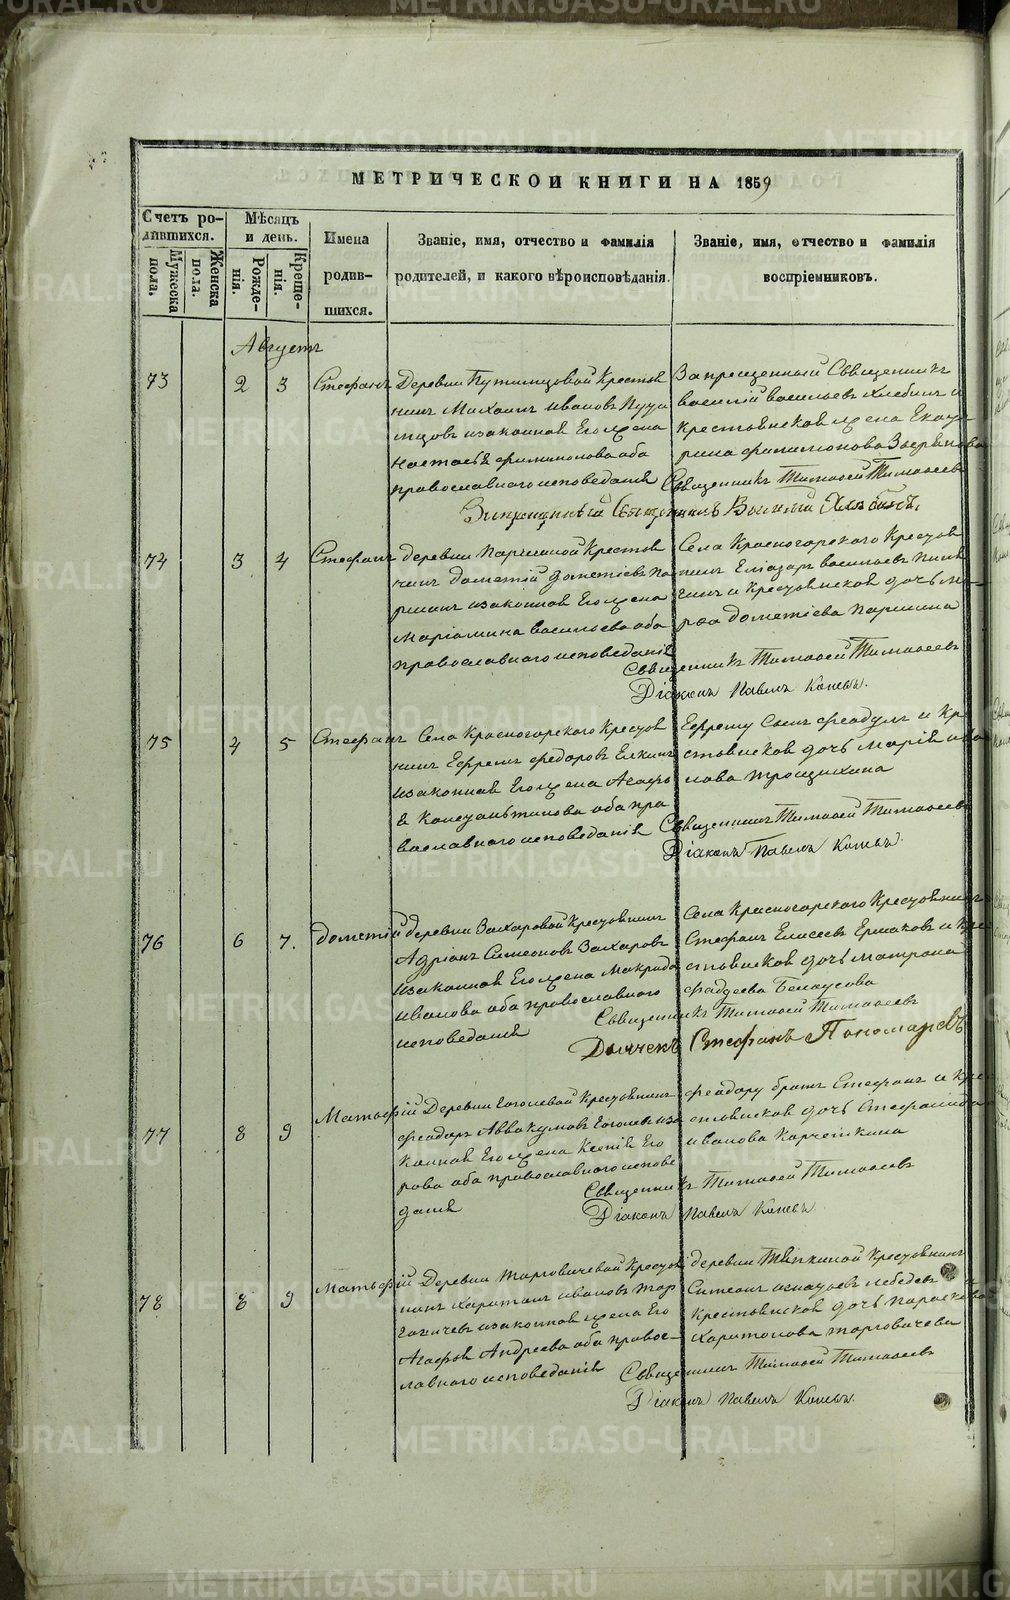 МЕТРИЧЕСКОЙ КНИГИ НА 1859
Счетъ родившихся.
Мужеска пола.
Женска пола.
Мѣсяцъ и день.
Рожденія.
Крещенія.
Имена родившихся.
Званіе, имя, отчество и фамилія
родителей, и какого вѣроисповѣданія.
Званіе, имя, отчество и фамилія
воспріемниковъ.
Августъ
73
2
3
Стефанъ
Деревни Путимцовой Крестья
нинъ Михаилъ Ивановъ Пути
мцовъ изаконная Его жена
Настасья Филимонова оба
православнаго исповеданія
Запрещенный Священникъ
Василій Васильевъ Хлебинъ и
крестьянская жена Екате
рина Филимонова Зверинова
Священникъ Тимофей Тимофеевъ
Запрещенный Священникъ Василий Хлебинъ.
74
3
4
Стефанъ
деревни Паршиной Крестья
нинъ Дометій Дометіевъ Па
ршинъ изаконная Его жена
Маріамина Васильева оба
православнаго исповеданія
Села Красногорскаго Крестья
нинъ Еліазаръ Васильевъ
и Крестьянская дочь Ма
рфа Дометіева Паршина
Священникъ Тимофей Тимофеевъ
Діаконъ Павелъ Коневъ.
75
4
5
Стефанъ
Села Красногорскаго Крестья
нинъ Ефремъ Федоровъ Елкинъ
изаконная Его жена Агафь
я Константинова оба пра
вославнаго исповеданія
Ефрему Сынъ Феодулъ и Кре
стьянская дочь Марія
Трощихина
Священникъ Тимофей Тимофеевъ
Діаконъ Павелъ Коневъ.
76
6
7.
Дометій
деревни Захаровой Крестьянинъ
Адріанъ Симеоновъ Захаровъ
изаконная Его жена Макрида
Иванова оба православнаго
исповеданія
Села Красногорскаго Крестьянинъ
Стефанъ Елисеевъ Ермаковъ и Кре
стьянская дочь Матрона
Фадеева Белоусова
Священникъ Тимофей Тимофеевъ
Дьячекъ Стефанъ Пономаревъ
77
8
9
Матфій
Деревни Гоголевой Крестьянинъ
Феодоръ Аввакумовъ Гоголевъ иза
конная Его жена Ксенія Его
рова оба православнаго испове
данія
Феодору братъ Стефанъ и Кре
стьянская дочь Стефанида
Иванова Карчемкина
Священникъ Тимофей Тимофеевъ
Діаконъ Павелъ Коневъ.
78
8
9
Матьфій
Деревни Торговичевой Крестья
нинъ Харитонъ Ивановъ Тор
говичевъ изаконная жена Его
Агафья Андреева оба правос
лавнаго исповеданія
деревни Тяпкиной Крестьянинъ
Симеонъ Игнатьевъ Лебедевъ и
Крестьянская дочь Параскева
Харитонова Торговичева
Священникъ Тимофей Тимофеевъ
Діаконъ Павелъ Коневъ.
METRIKI.GASO-URAL.RU